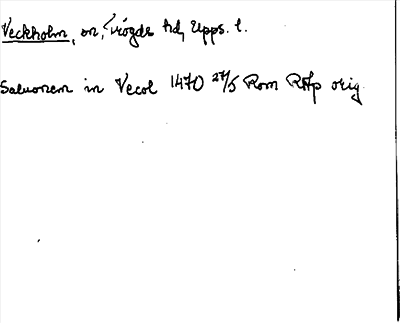 Veckholm, sn, Trögds hd, Upps. l.
Salwonem in Vecol 1470 27/5 Rom RAp orig